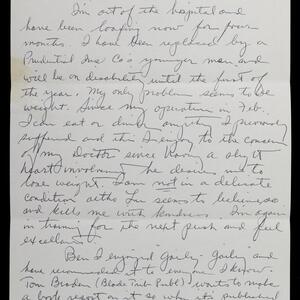 I'm out of the hospital and
have been loafing now for four
months. I have been replaced by a
Prudential Ins Co's younger man and
will be on disability until the first of
the year. My only problem seems to be
weight. Since my operation in Feb.
I can eat or drink anything I previously
suffered and this I enjoy to the concern
of my Doctor since having a slight
heart involvment he desires me to
lose weight. I am not in a delicate
condition altho Lu seems to believe so
and kills me with kindness. I'm again
in training for the next push and feel
excellent.
Ben I enjoyed "
have recommended it to everyone I know.
Tom (Blade Trib Publ) wants to make
a book report on it so when its published